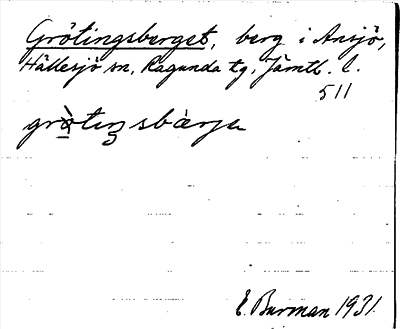 Grötingsberget, berg i Ansjö,
Hällesjö sn, Ragunda tg, Jämtl. l.
511
E. Burman 1931